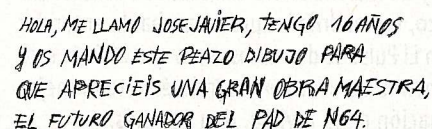 HOLA, ME LLAMO JOSE JAVIER, TENGO 16 AÑOS
Y OS MANDO ESTE PEAZO DIBUJO PARA
QUE APRECIEIS UNA GRAN OBRA MAESTRA,
EL FUTURO GANADOR DEL PAD DE N64.